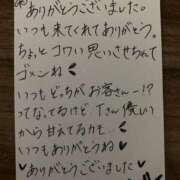 ありがとうございました。
いつも来てくれてありがとう。
ちょっとコワい思いさせちゃって
ゴメンね
いつもどっちがお客さんー!?
ってなってるけど、Tさん優しい
から甘えてるカモ...
いつもありがとうね
♥ありがとうございました♥